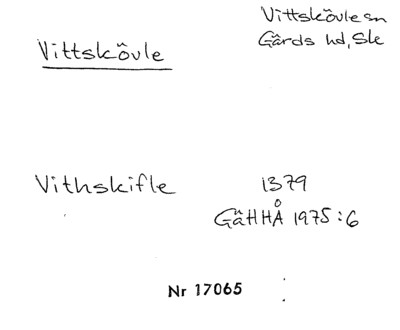 Vittskövle
Vittskövle sn
Gärds hd, Ske
Vithskifle 1379
GäHHÅ 1975:6
Nr 17065